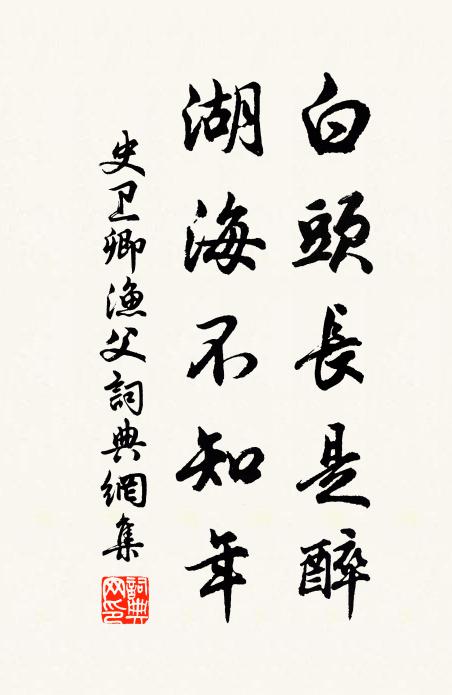 白頭長是醉
湖海不知年
史卫卿漁父詞典網集
詞典网印